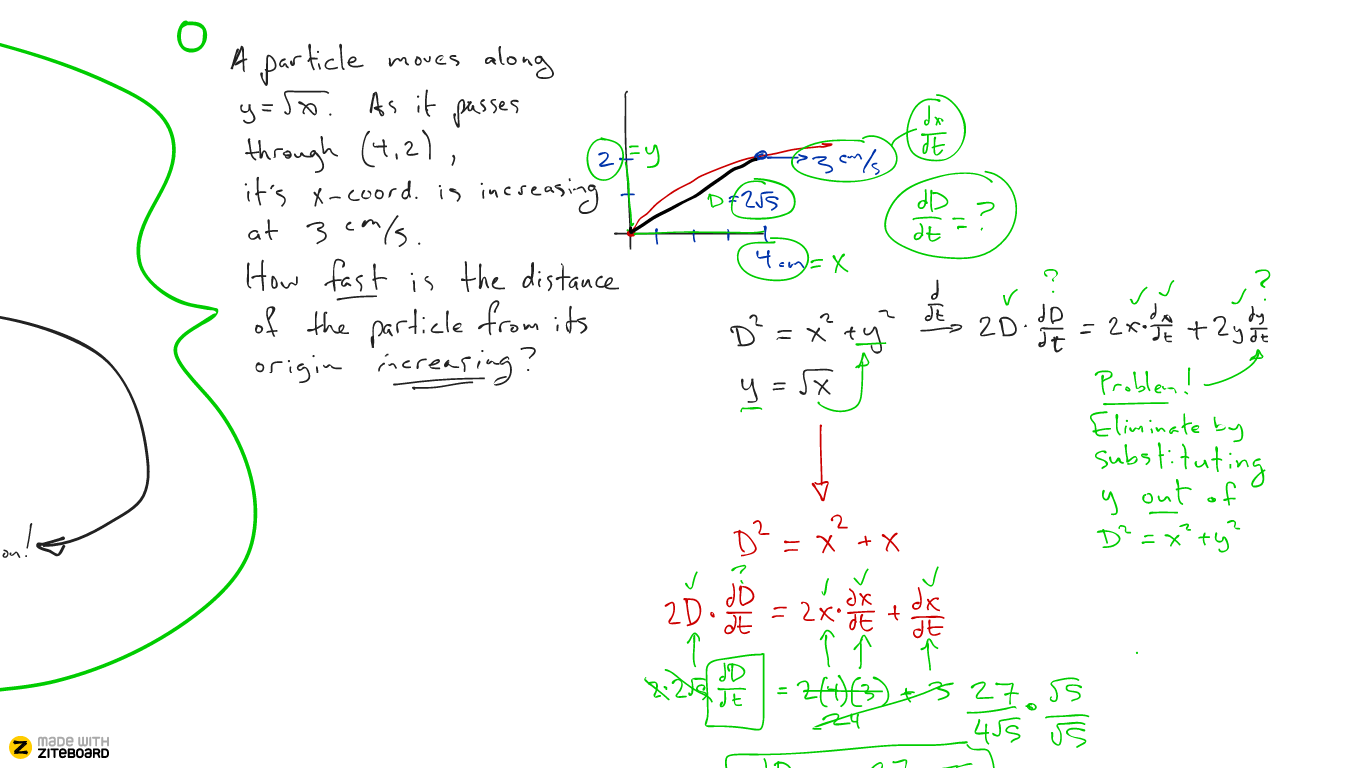 A particle moves along
y = √x. As it passes
through (4,2),
it's x-coord. is increasing
at 3 cm/s.
How fast is the distance
of the particle from its
origin increasing?
2 = y
3 cm/s
dx/dt
D = 2√5
dD/dt = ?
4 cm = x
D² = x² + y²
d/dt
2D · dD/dt = 2x · dx/dt + 2y dy/dt
? ?
y = √x
Problem!
Eliminate by
substituting
y out of
D² = x² + y²
D² = x² + x
?
2D · dD/dt = 2x · dx/dt + dx/dt
2·2√5 dD/dt = 2(4)(3) + 3
24
27/4√5 · √5/√5
dD 27
on!
MADE WITH
ZITEBOARD